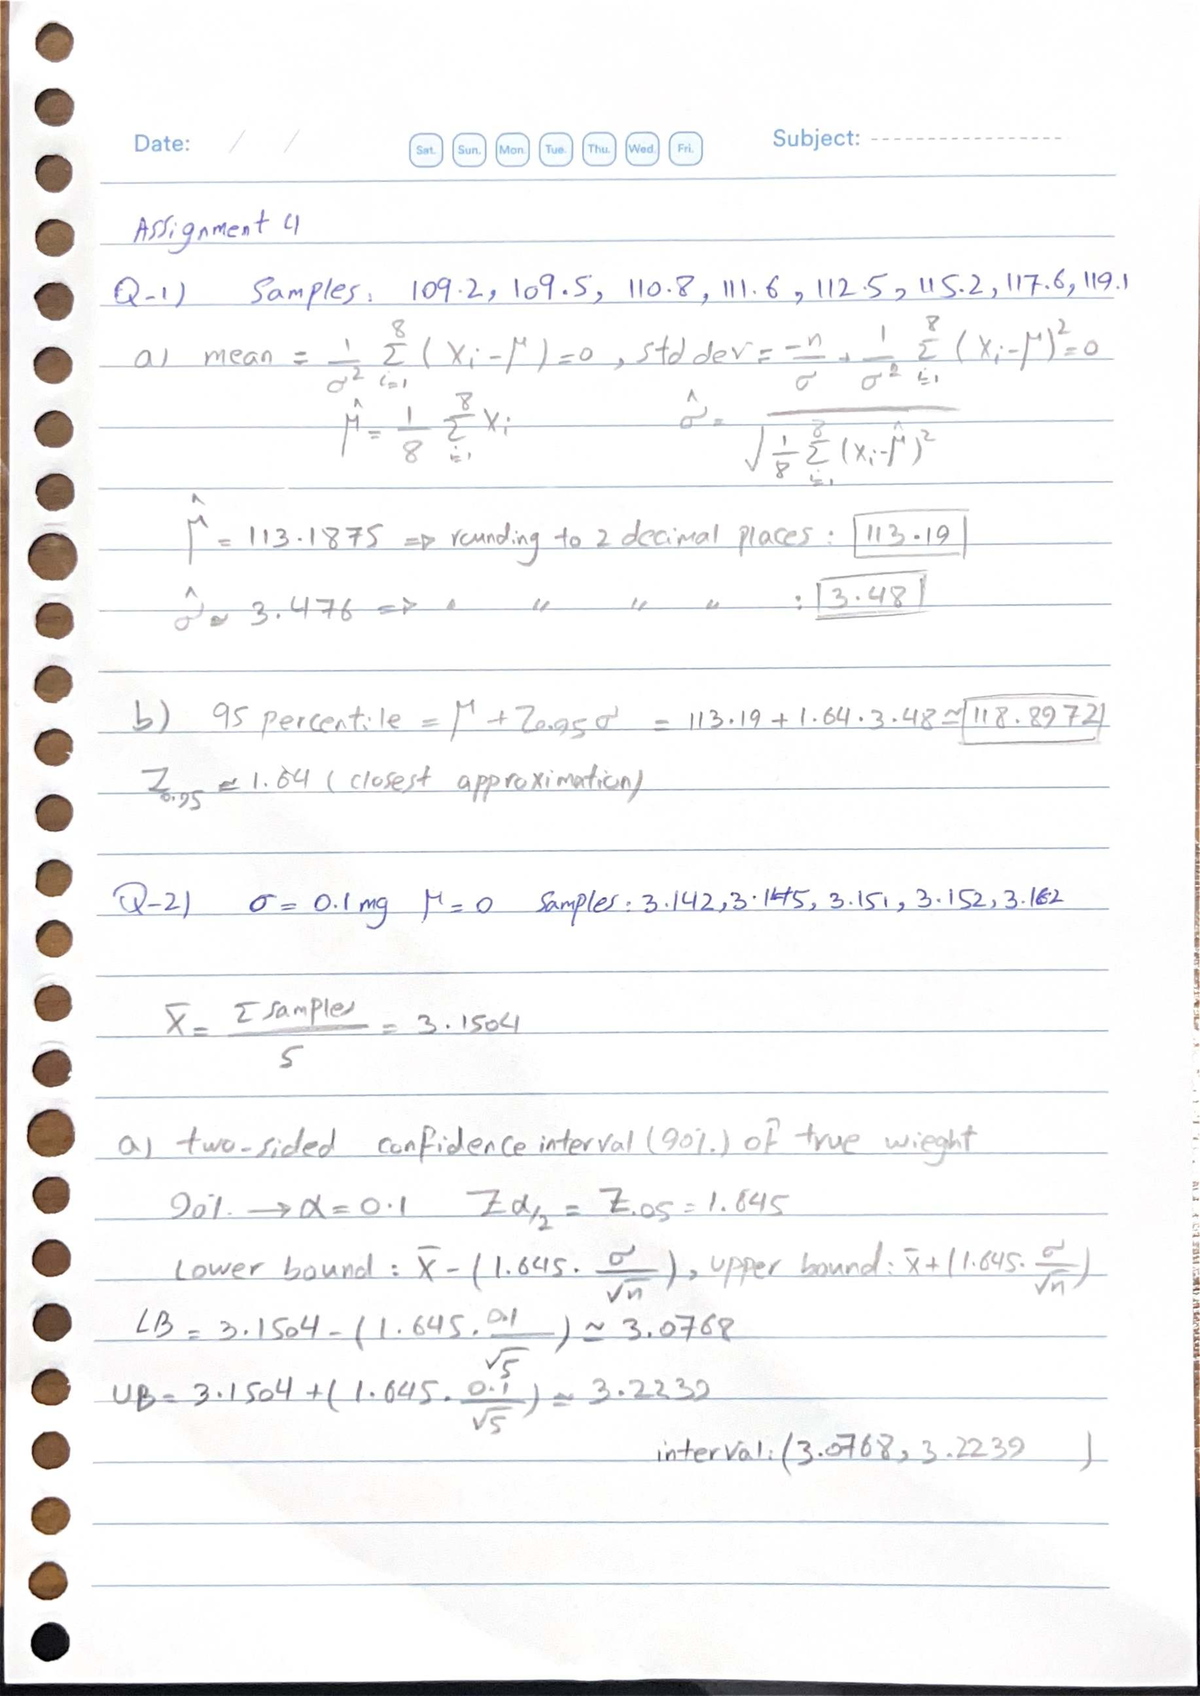 Date: / / Sat. Sun. Mon. Tue. Thu. Wed. Fri. Subject:
Assignment 4
Q-1) Samples: 109.2, 109.5, 110.8, 111.6, 112.5, 115.2, 117.6, 119.1
a) mean = 1/σ² Σ_{i=1}^{8} (Xi - μ) = 0, std dev = -n/σ + 1/σ² Σ_{i=1}^{8} (Xi - μ)² = 0
μ̂ = 1/8 Σ_{i=1}^{8} Xi σ̂ = √(1/8 Σ_{i=1}^{8} (Xi - μ̂)²)
μ̂ = 113.1875 => rounding to 2 decimal places : 113.19
σ̂ ≈ 3.476 => " " " " : 3.48
b) 95 percentile = μ + Z0.95 σ = 113.19 + 1.64 · 3.48 ≈ 118.8972
Z0.95 ≈ 1.64 (closest approximation)
Q-2) σ = 0.1 mg μ = 0 Samples: 3.142, 3.145, 3.151, 3.152, 3.162
X̄ = Σ samples / 5 = 3.1504
a) two-sided confidence interval (90%) of true wieght
90% → α = 0.1 Zα/2 = Z.05 = 1.645
Lower bound : X̄ - (1.645 · σ/√n), upper bound : X̄ + (1.645 · σ/√n)
LB = 3.1504 - (1.645 · 0.1/√5) ≈ 3.0768
UB = 3.1504 + (1.645 · 0.1/√5) ≈ 3.2239
interval: (3.0768, 3.2239 )